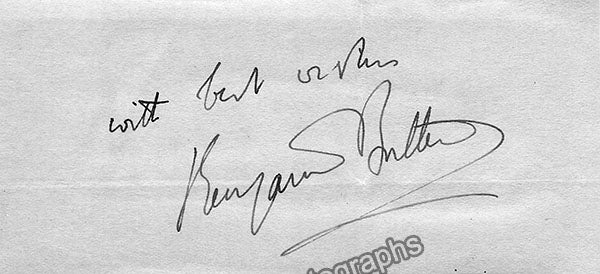 with best wishes
Benjamin Britten
tographs